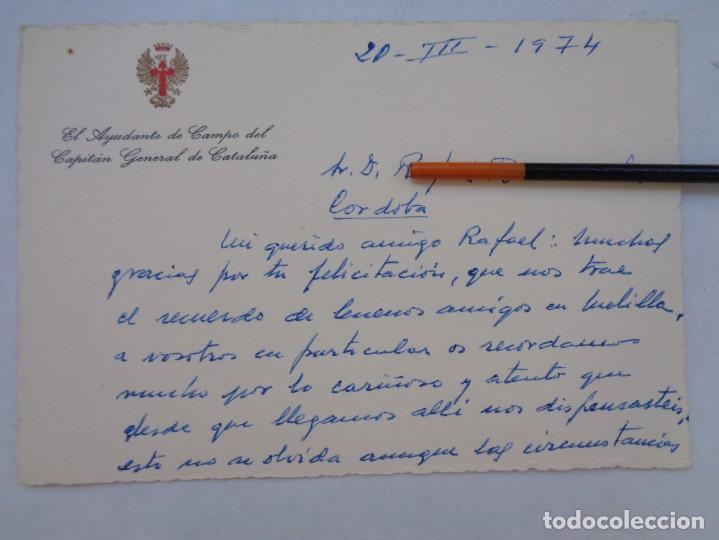 20-III-1974
El Ayudante de Campo del
Capitán General de Cataluña
Sr. D.
Cordoba
Mi querido amigo Rafael: Muchas
gracias por tu felicitación, que nos trae
el recuerdo de buenos amigos en Melilla,
a vosotros en particular os recordamos
mucho por lo cariñoso y atento que
desde que llegamos allí nos dispensasteis,
esto no se olvida aunque las circunstancias
todocoleccion.net